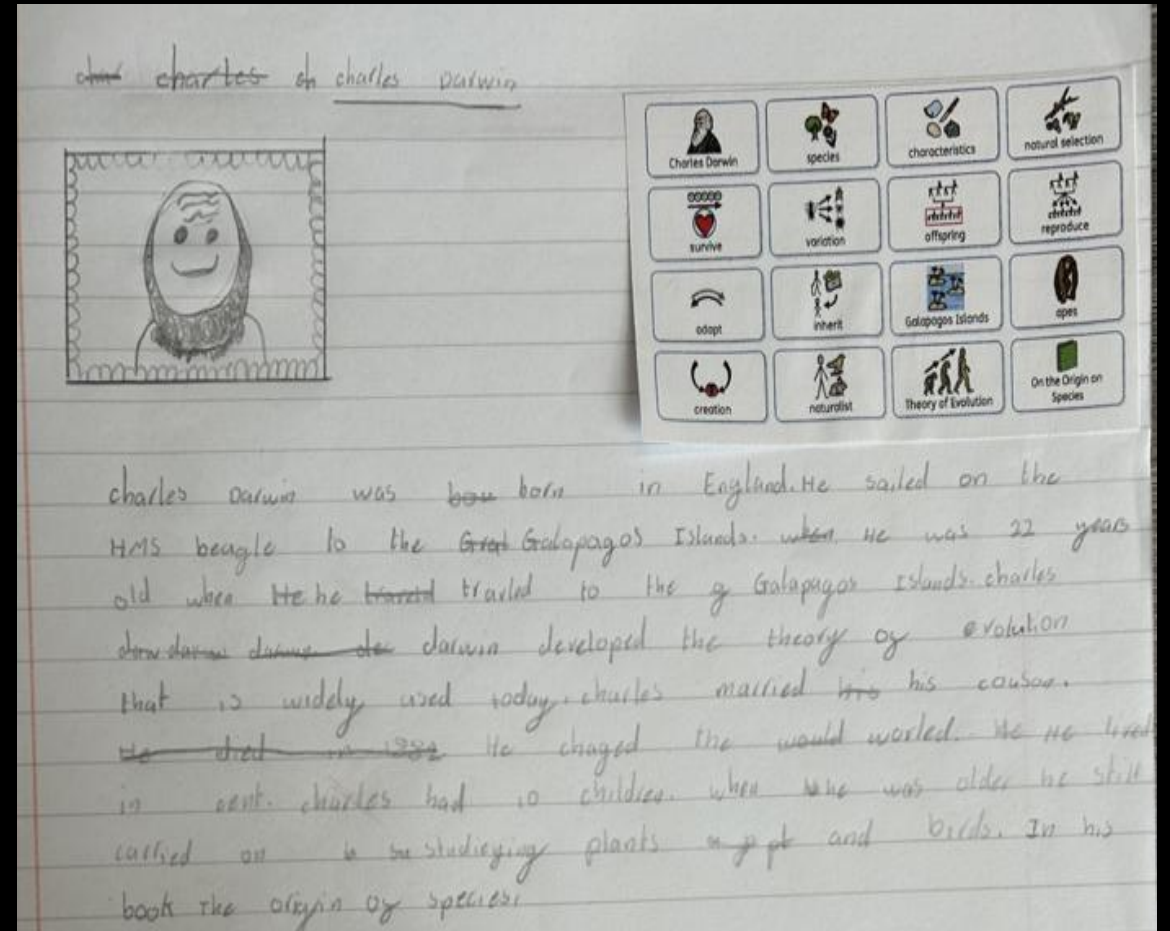 charles ch charles Darwin
Charles Darwin
species
characteristics
natural selection
survive
variation
offspring
reproduce
adapt
inherit
Galapagos Islands
apes
creation
naturalist
Theory of Evolution
On the Origin on Species
charles Darwin was born in England. He sailed on the
HMS beagle to the Great Galapagos Islands. when He was 22 years
old when He he travled to the g Galapagos Islands. charles
darwin developed the theory of evolution
that is widely used today. charles married his his cousoe.
He died in He chaged the would worled. He He lived
in charles had 10 children. when he was older he still
carried on studieying plants and birds. In his
book the origin of species.